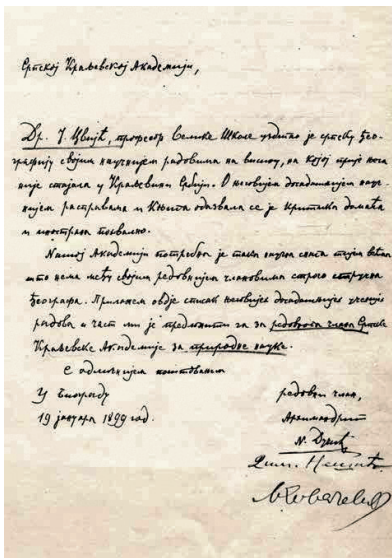 Српској Краљевској Академији,
Др. Ј. Цвијћ, професор Велике Школе уздигао је српску гео-
графију својим научнијем радовима на висину, на којој прије нога
није стајала у Краљевини Србији. О његовијем досадашњијем науч-
нијем расправама и књига одазвала се је критика домаћа
и инострана похвално.
Нашој Академији потребна је така научна снага тијем већма
што нема међу својим редовнијем члановима строго стручна
географа. Прилажем овдје списак његовијех досадашњијех ученијех
радова и част ми је предложити га за редовнога члана Српске
Краљевске Академије за природне науке.
С одличнијем поштовањем
У Београду
19 јануара 1899 год.
редовни члан,
Архимандрит
Н. Дучић
Дим. Нешић
Љ. Ковачевић